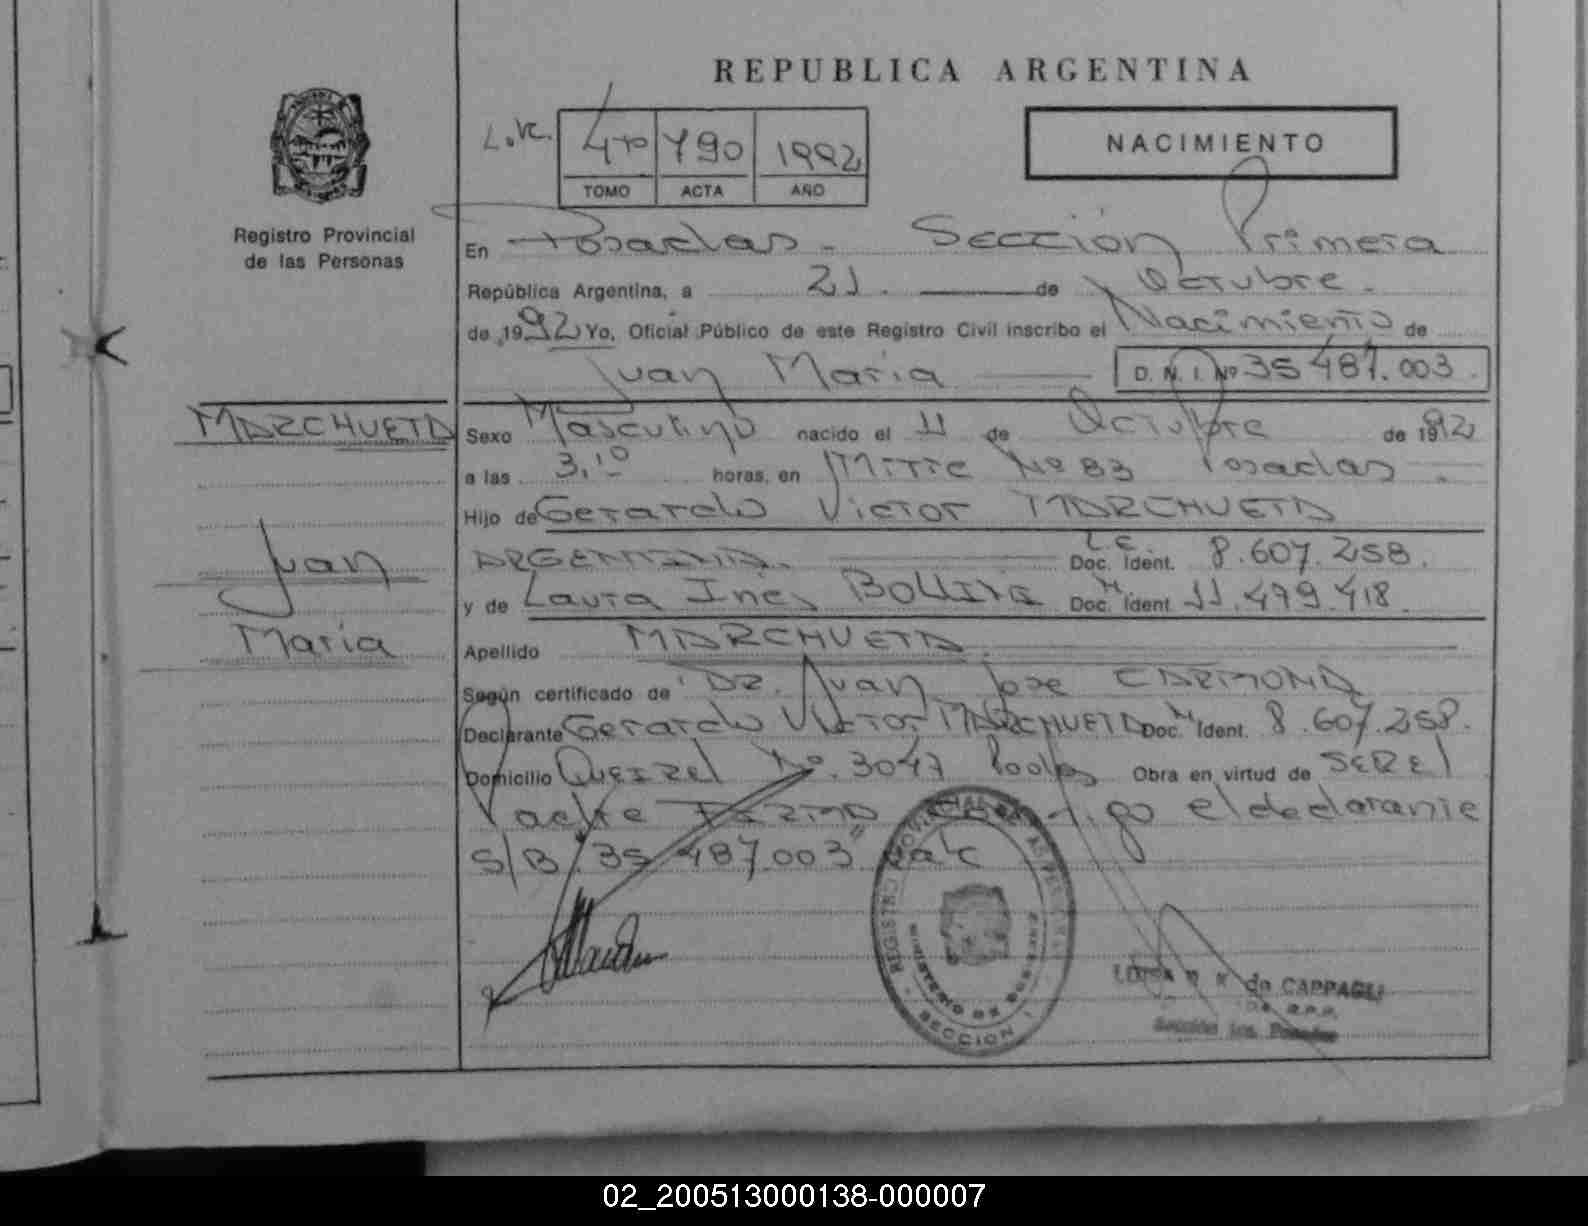 REPUBLICA ARGENTINA
L.K. 4to 790 1992
TOMO ACTA AÑO
NACIMIENTO
Registro Provincial
de las Personas
En Posadas - Sección Primera
República Argentina, a 21. de Octubre.
de 1992 Yo, Oficial Público de este Registro Civil inscribo el Nacimiento de
Juan María D. N. I. Nº 35 487.003.
MARCHUETA
Juan
María
Sexo Masculino nacido el 11 de Octubre de 1992
a las 3,10 horas, en Mitre Nº 83 Posadas
Hijo de Gerardo Victor MARCHUETA
ARGENTINA. L.E. Doc. Ident. 8.607.258.
y de Laura Inés Doc. Ident 11.479.418.
Apellido MARCHUETA.
Según certificado de DR. Juan Jose CARMONA
Declarante Gerardo Victor MARCHUETA Doc. Ident. 8.607.258.
Domicilio Nº. 3047 Obra en virtud de SER El
Padre FIRMA el declarante
S/B 35 487.003
REGISTRO PROVINCIAL DE LAS PERSONAS
MINISTERIO DE
SECCION 1
de CAPPAGLI
Sección 1ra. Posadas
02_200513000138-000007